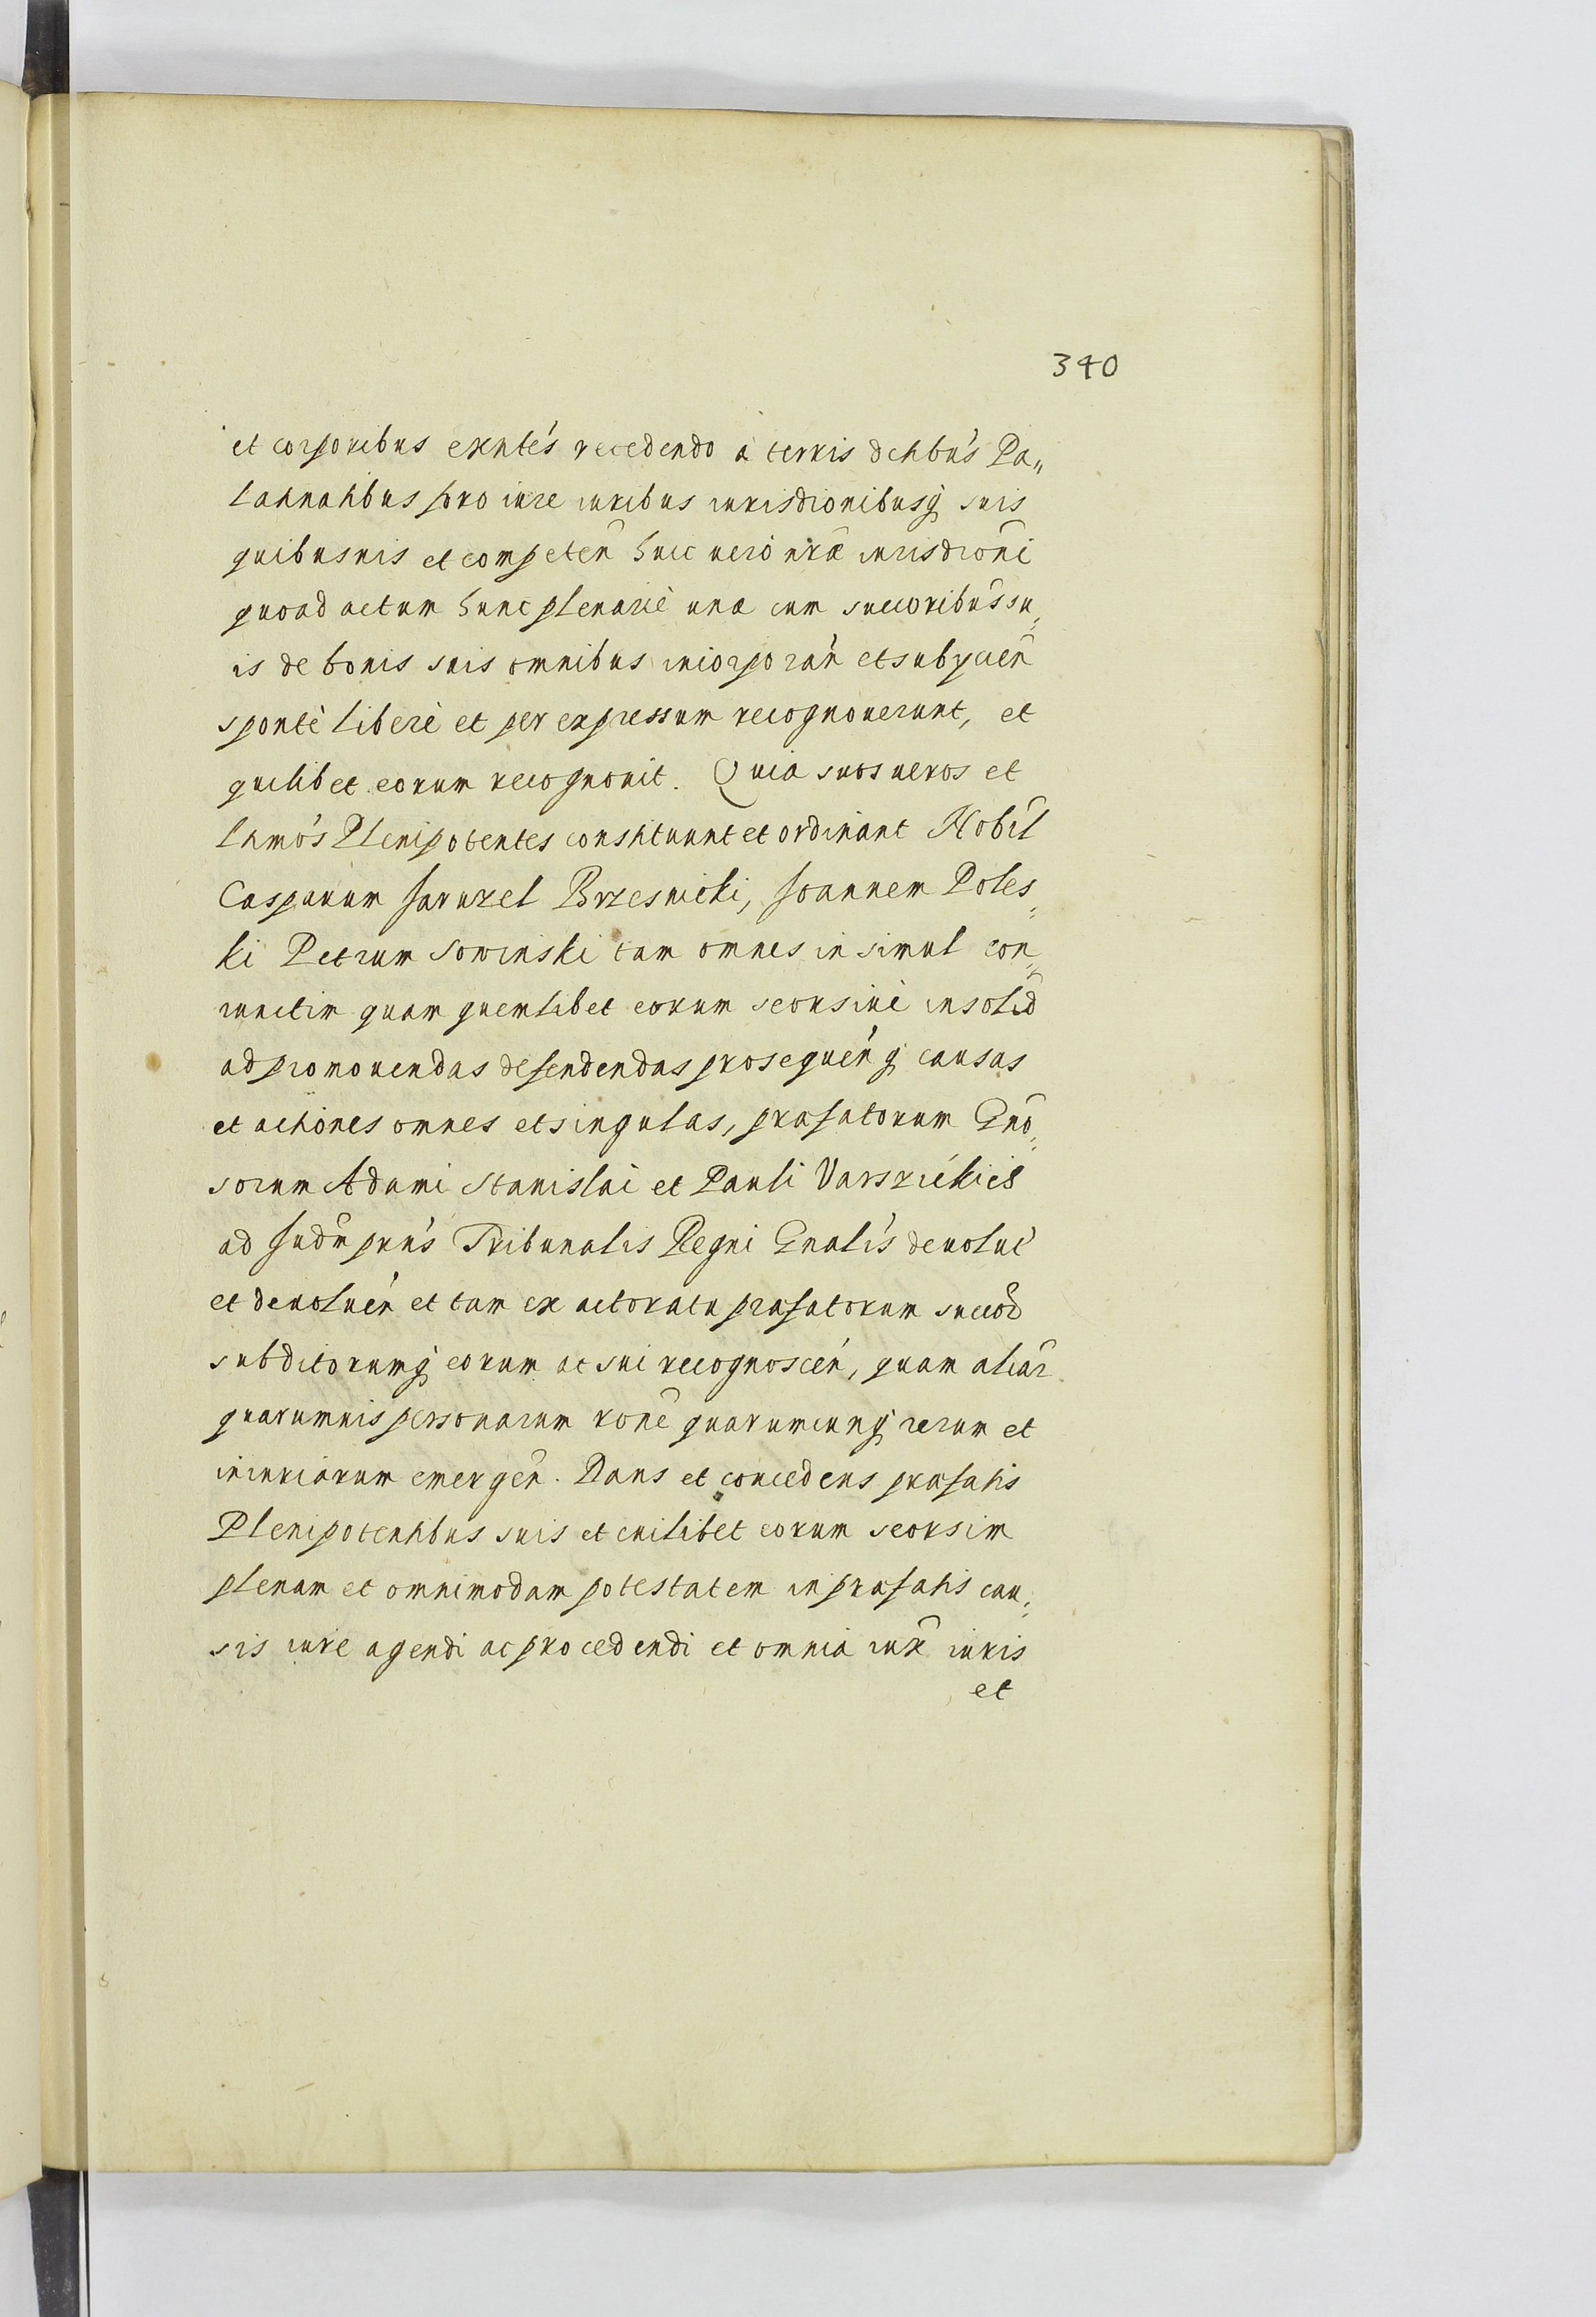 340
et corporibus exñtes recedendo à terris dctibús Pa„
latinatibus foro iure iuribus iurisdionibusq́ suis
quibusuis et competeñ huic uerò nræ iurisdioñi
quoad actum hunc plenariè una cum succoribús su„
is de bonis suis omnibus incorporań et subycień
spontè liberè et per expressum recognouerunt, et
quilibet eorum recognouit. Quia suos ueros et
ltimós Plenipotentes constituunt et ordinant Nobil̃
Casparum Jaruzel Brzesnicki, Joannem Poles„
ki Petrum Sowinski tam omnes in simul con„
iunctim quam quemlibet eorum seorsiuè insolid̃
ad promouendas defendendas prosequeńq́ causas
et actiones omnes et singulas, præfatorum Gño„
sorum Adami Stanislai et Pauli Varszickich
ad Judm̃ prñs Tribunalis Regni Gñalis deuolut́
et deuoluéń et tam ex actoratu præfatorum succoȓ
subditorumq́ eorum ac sui recognosceń, quam aliar̃
quarumuis personarum rone quarumcunq́ rerum et
iniuriarum emergeñ. Dans et concedens præfatis
Plenipotentibus suis et cuilibet eorum seorsim
plenam et omnimodam potestatem in præfatis cau„
sis iure agendi ac procedendi et omnia iux̃ iuris
et